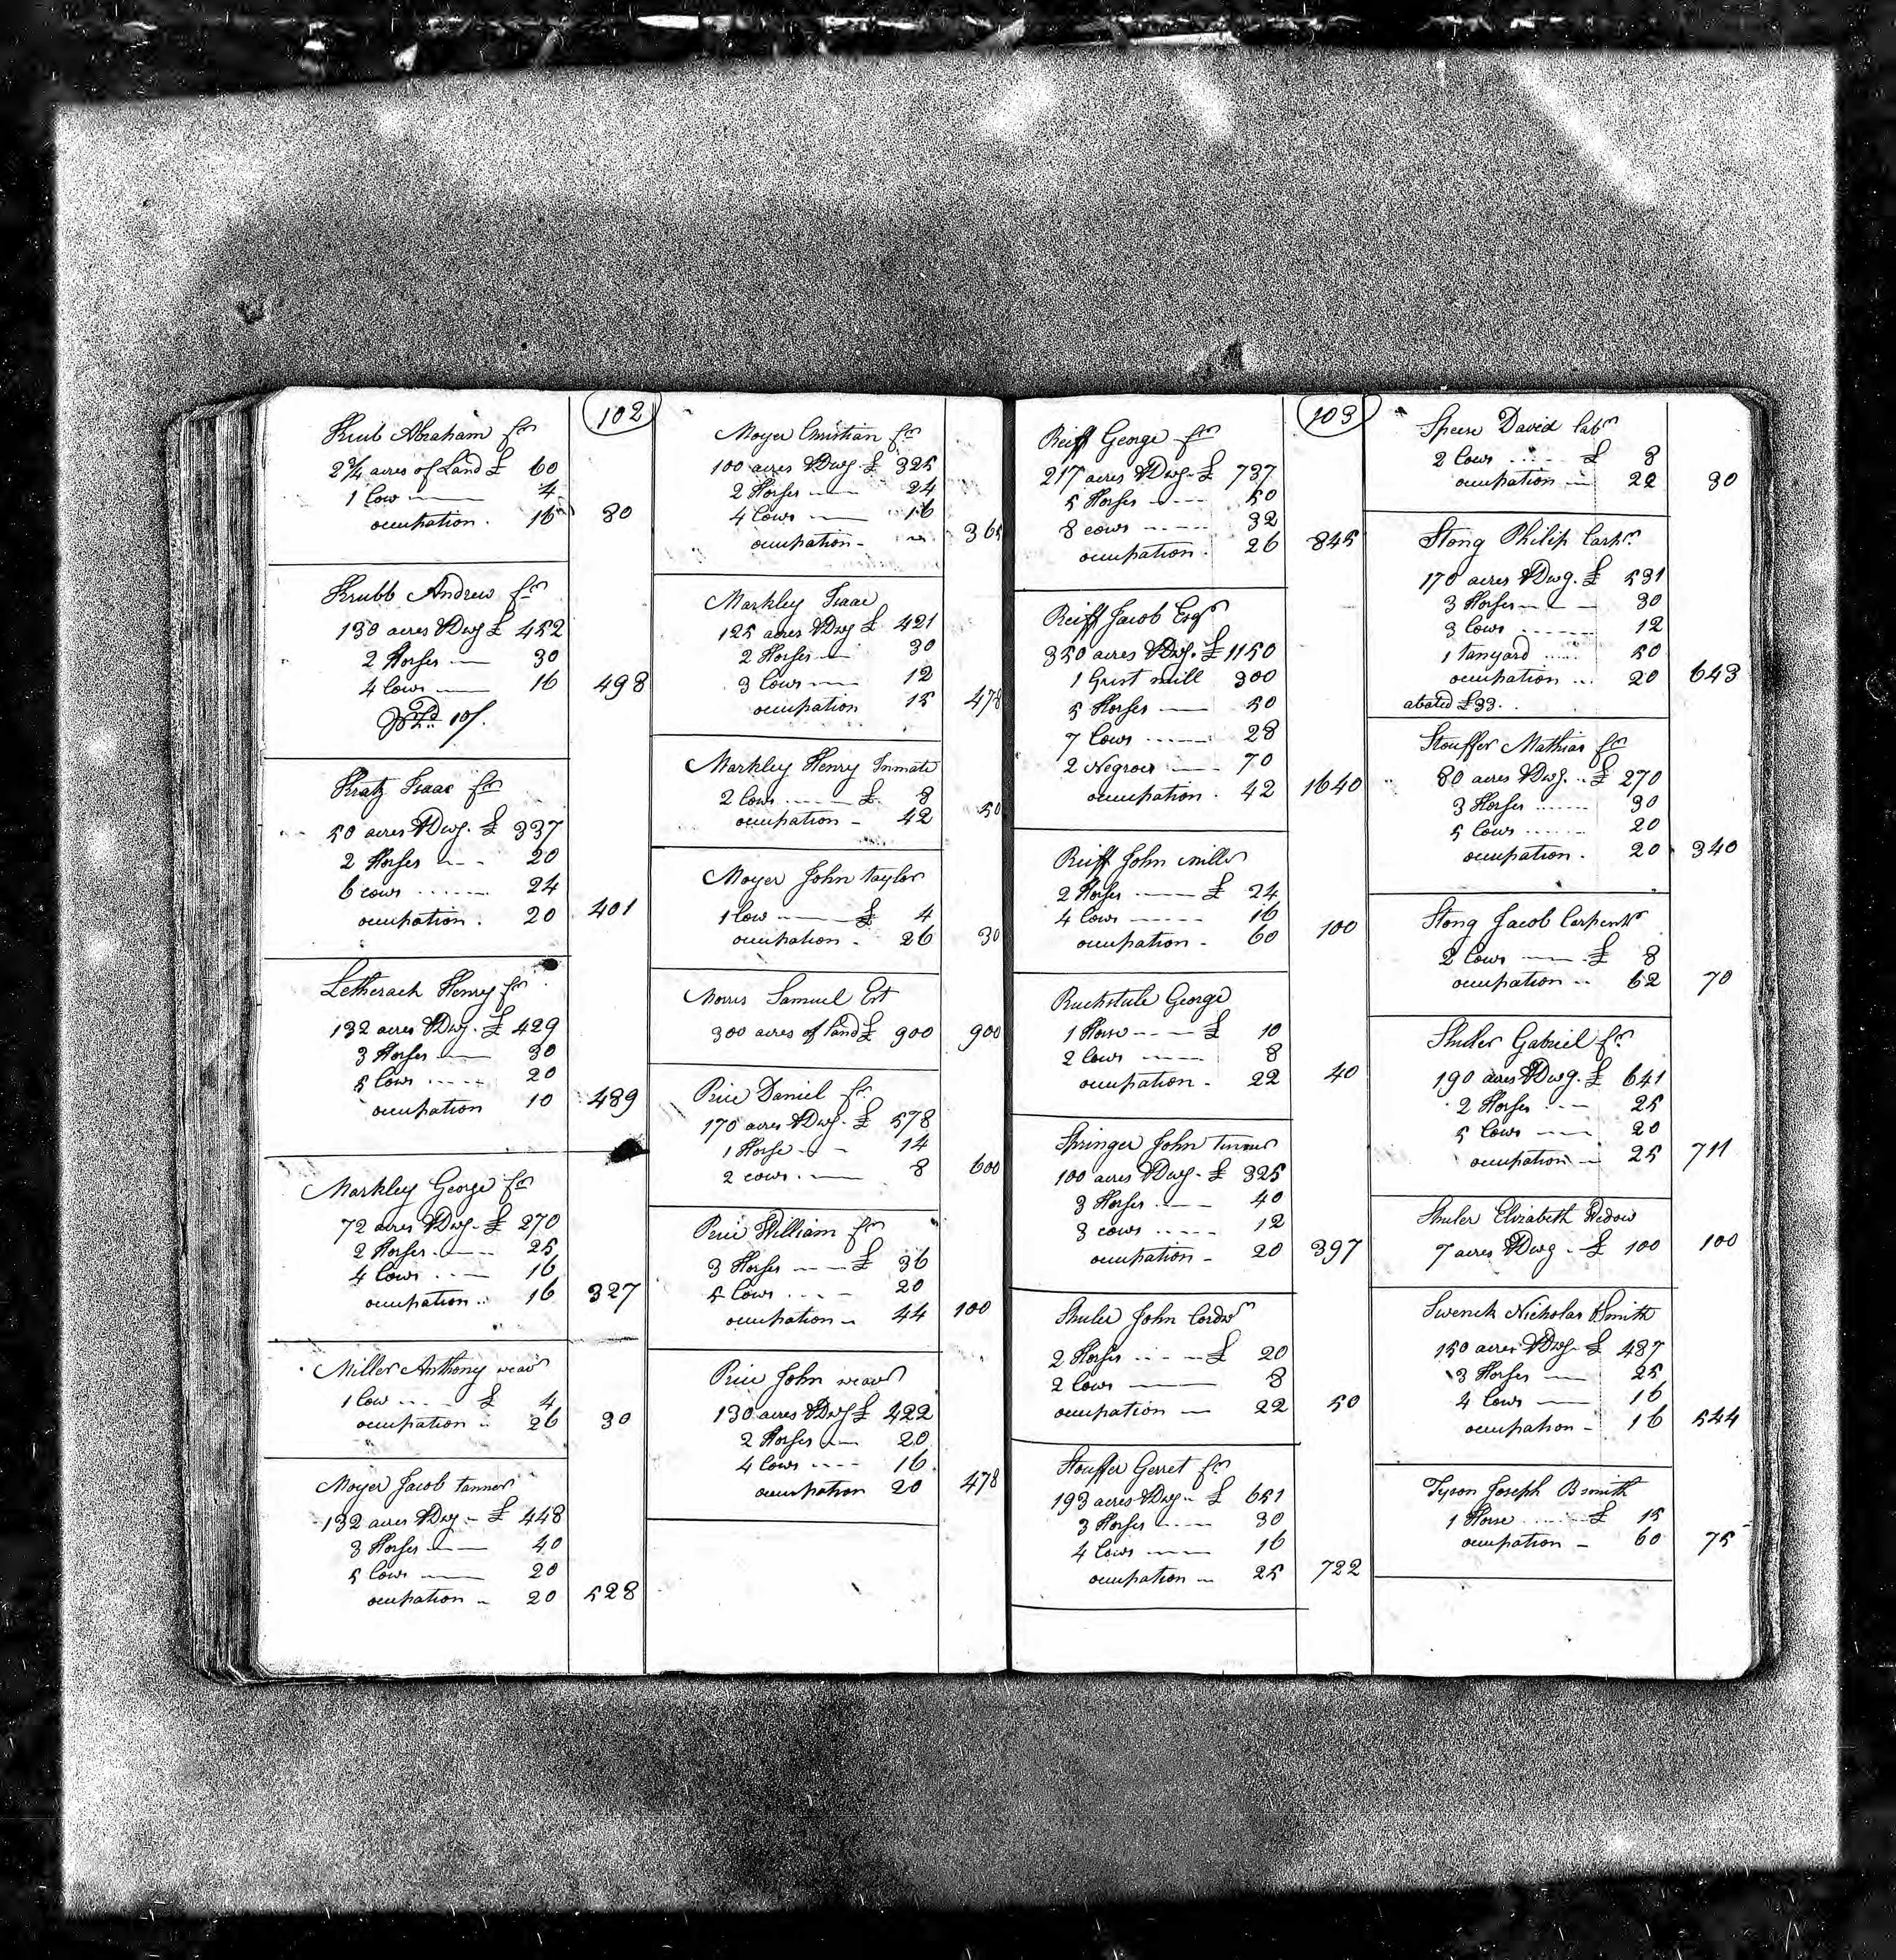 102
Krub Abraham fr
2¾ acres of Land £ 60
1 Cow 4
occupation . 16 80
Krubb Andrew fr
130 acres & Dwg £ 452
2 Horses 30
4 Cows 16 498
10/.
Kratz Isaac fr
50 acres & Dwg. £ 337
2 Horses 20
6 cows 24
occupation . 20 401
Letherach Henry fr
132 acres & Dwg. £ 429
3 Horses 30
5 Cows 20
occupation 10 489
Markley George fr
72 acres & Dwg. £ 270
2 Horses 25
4 Cows 16
occupation 16 327
Miller Anthony weavr
1 Cow £ 4
occupation 26 30
Moyer Jacob tanner
132 acres & Dwg £ 448
3 Horses 40
5 Cows 20
occupation 20 528
Moyer Christian fr
100 acres & Dwg £ 325
2 Horses 24
4 Cows 16
occupation 365
Markley Isaac
125 acres & Dwg £ 421
2 Horses 30
3 Cows 12
occupation 15 478
Markley Henry Inmate
2 Cows £ 8
occupation 42 50
Moyer John taylor
1 Cow £ 4
occupation 26 30
Morris Samuel Est
300 acres of land £ 900 900
Price Daniel fr
170 acres & Dwg. £ 578
1 Horse 14
2 cows 8 600
Price William fr
3 Horses £ 36
5 Cows 20
occupation 44 100
Price John weavr
130 acres & Dwg £ 422
2 Horses 20
4 Cows 16
occupation 20 478
103
Reiff George fr
217 acres & Dwg £ 737
5 Horses 50
8 cows 32
occupation 26 845
Reiff Jacob Esqr
350 acres & Dwg. £ 1150
1 Grist mill 300
5 Horses 50
7 Cows 28
2 Negroes 70
occupation . 42 1640
Reiff John miller
2 Horses £ 24
4 Cows 16
occupation 60 100
Ruchstule George
1 Horse £ 10
2 Cows 8
occupation 22 40
Springer John turner
100 acres & Dwg £ 325
3 Horses 40
3 cows 12
occupation 20 397
Shuler John Cordwr
2 Horses £ 20
2 Cows 8
occupation 22 50
Stouffer Gerret fr
193 acres & Dwg £ 651
3 Horses 30
4 Cows 16
occupation 25 722
Speese David Labr
2 Cows £ 8
occupation 22 30
Stong Philip Carpr
170 acres & Dwg. £ 531
3 Horses 30
3 Cows 12
1 tanyard 50
occupation 20 643
abated £33.
Stouffer Mathias fr
80 acres & Dwg. £ 270
3 Horses 30
5 Cows 20
occupation . 20 340
Stong Jacob Carpentr
2 Cows £ 8
occupation 62 70
Shuler Gabriel fr
190 acres & Dwg. £ 641
2 Horses 25
5 Cows 20
occupation 25 711
Shuler Elizabeth Widow
7 acres & Dwg £ 100 100
Swenck Nicholas BSmith
150 acres & Dwg £ 487
3 Horses 25
4 Cows 16
occupation 16 544
Tyson Joseph Bsmith
1 Horse £ 15
occupation 60 75